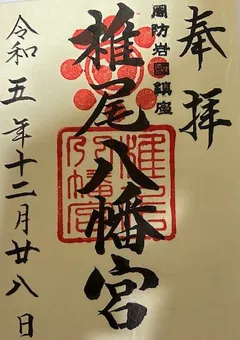 奉拝
周防岩國鎮座
椎尾八幡宮
椎尾八幡宮
令和五年十二月廿八日